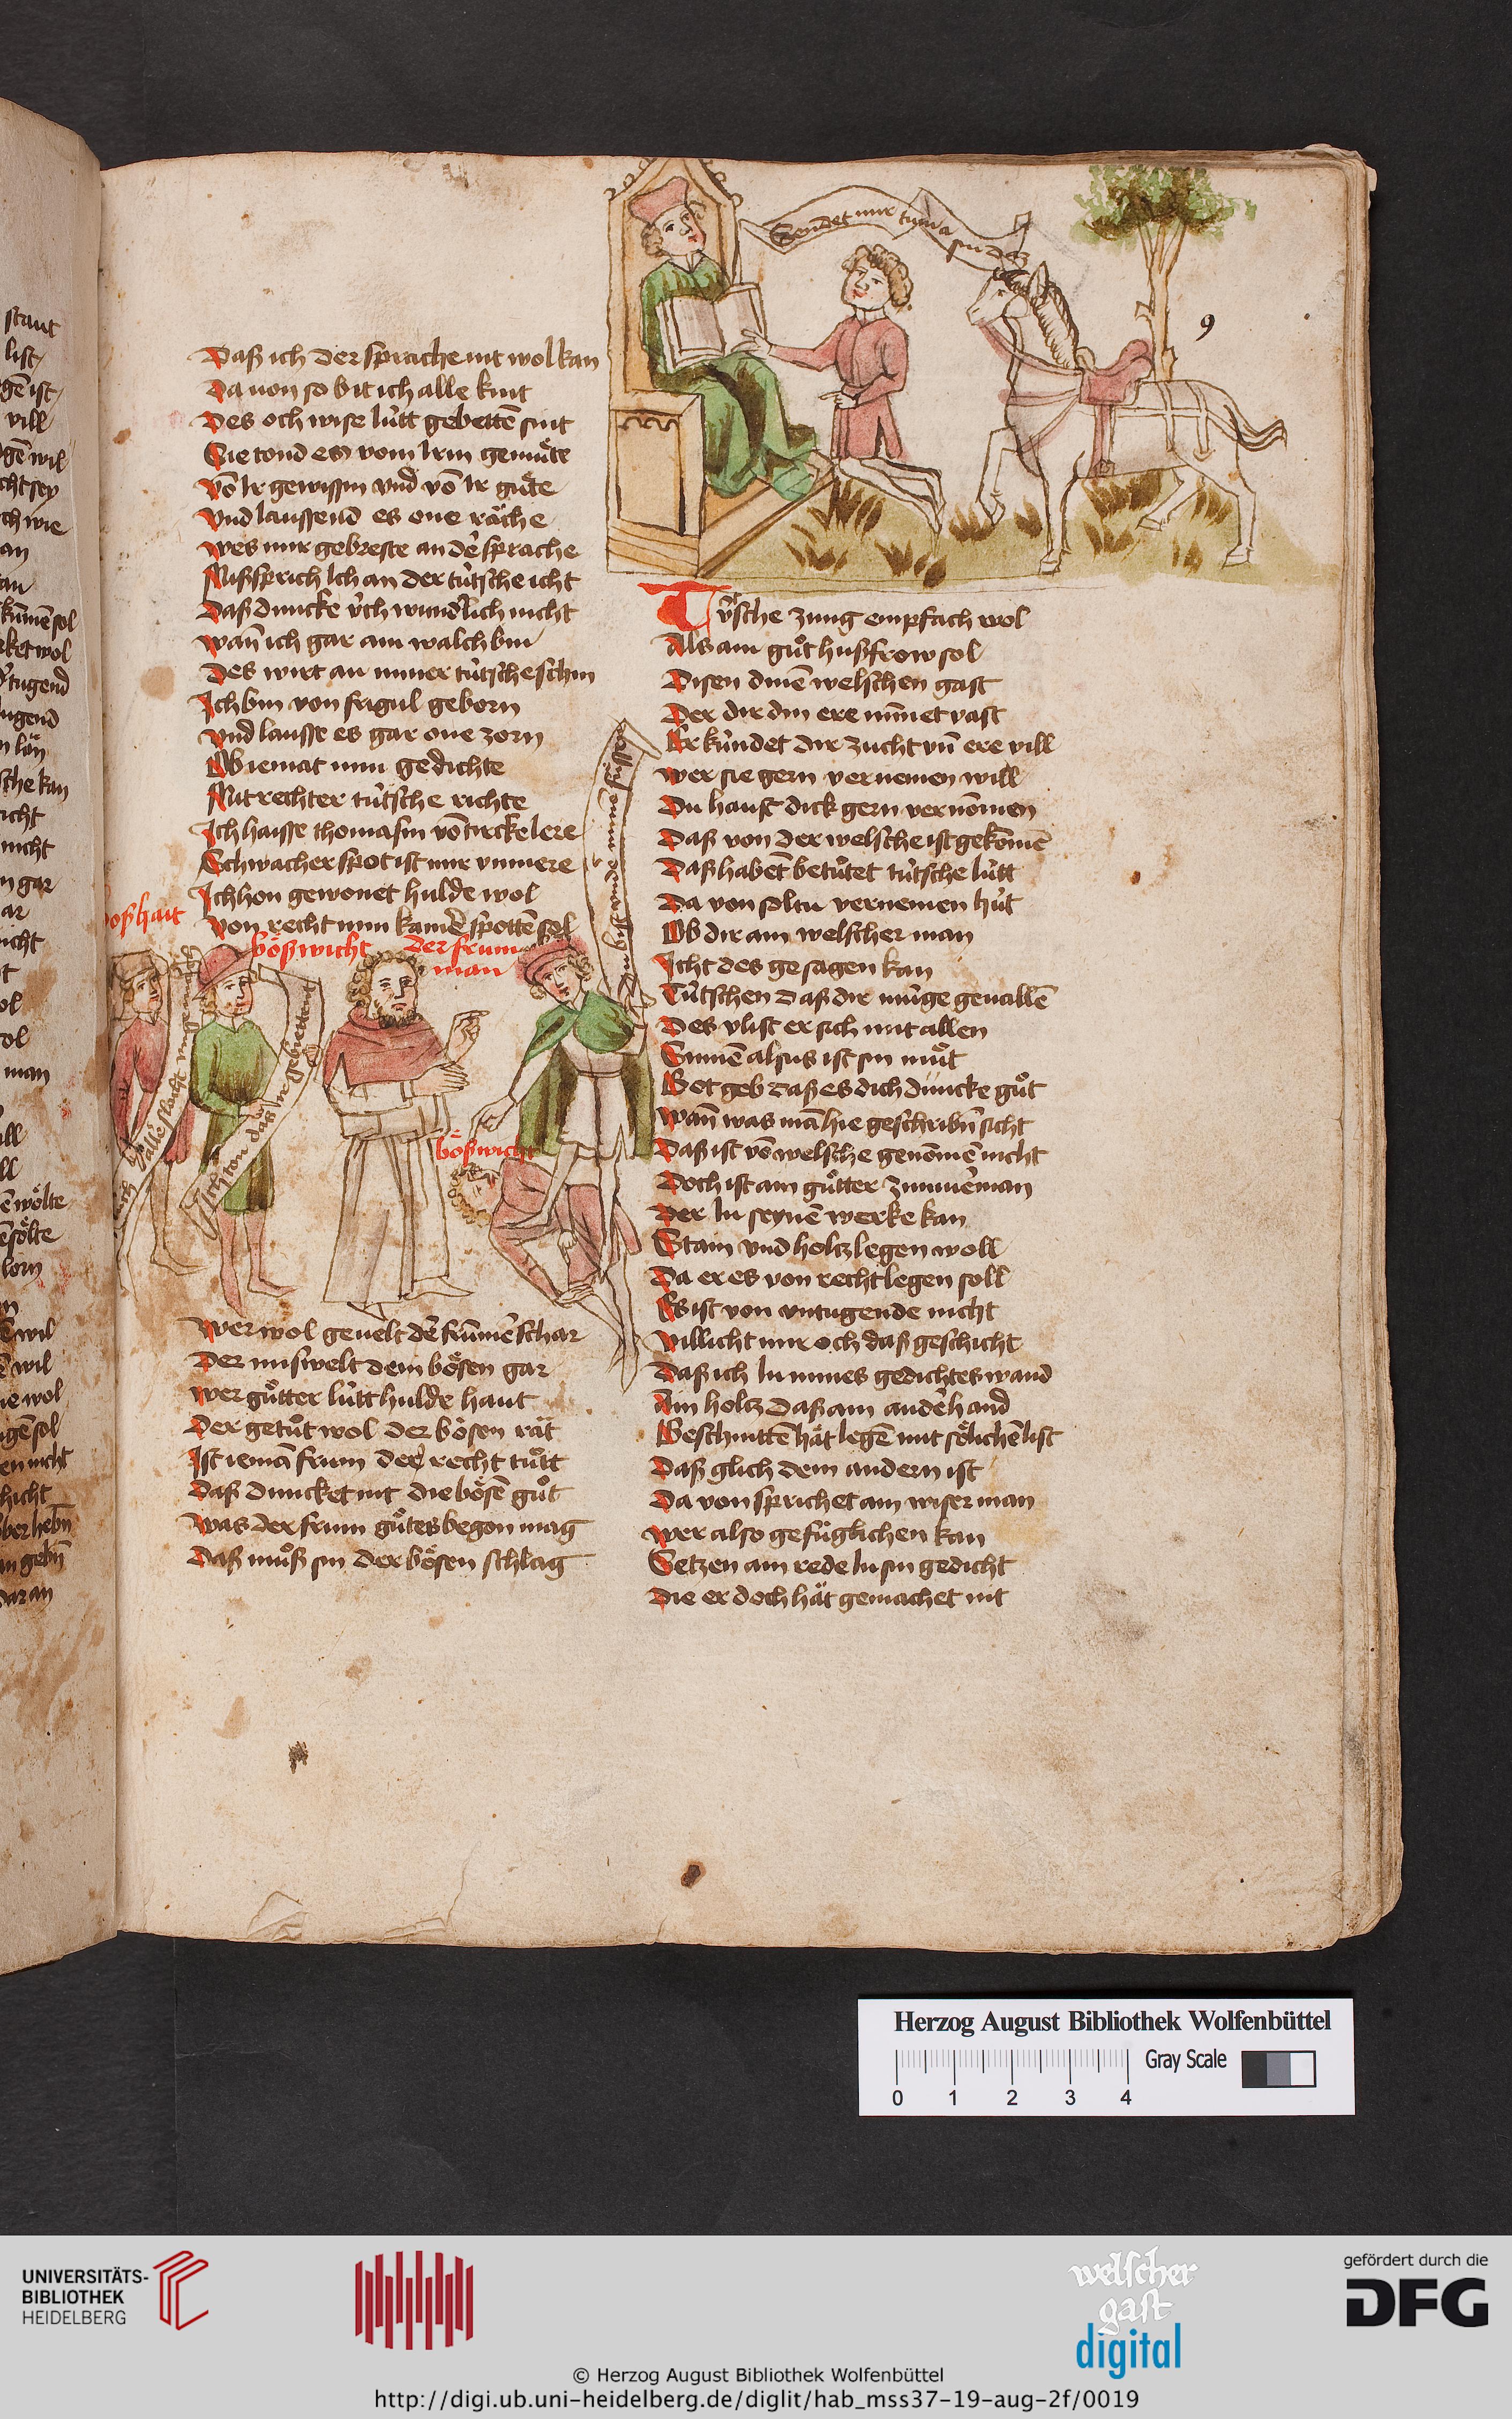 Daß ich der sprache nit wol kan
Da uon so bit ich alle kint
Des och wise lútt gebettē sint
Sie tond es vom Irm gemůte
vō Ir gewissin vnd vō Ir gůte
vnd laussend es one räche
wes mir gebreste an dē sprache
Missprich Ich an der tútsche icht
Daß duncke úch wundlich nicht
wan̄ ich gar ain walch bin
Des wirt an miner tútsche schin
Ich bin von frigul geborn
vnd lausse es gar one zorn
Ob iemat min gedichte
Mit rechter tútsche richte
Ich haisse thomasin vō tirckelere
Schwacher spot ist mir vnmere
Ich hon gewonet hulde wol
von recht min kainē spottē sol
boßhait
bößwicht
der frum
man
bößwicht
Ich ton daß ir gebiettent
wer wol geuelt dē frūmē schar
Der misuelt dem bösen gar
wer gůtter lútt hulde haut
Der getůt wol der bösen rät
Ist iemā frum der recht tůtt
Daß duncket nit die bösē gůt
was der frum gůtes begon mag
Daß můß sin der bösen schlag
Sendet mir
9
Túsche zung empfach wol
Als ain gůt hußfrow sol
Disen dinē welschen gast
Der dir din ere minnet vast
Er kúndet dir zucht vn̄ ere vill
wer sie gern vernemen will
Du haust dick gern vernōmen
Daß von der welsche ist gekōmē
Daß habent betútet tútsche lútt
Da von soltu vernemen hút
Ob dir ain welscher man
Icht des gesagen kan
Tútschen daß dir múge geuallē
Des vlist er sich mit allen
Sinnē alsus ist sin můt
Got geb daß es dich duncke gůt
wan̄ was mā hie geschribn̄ sicht
Daß ist vō welsche genōmē nicht
Doch ist ain gůtter zimmēman
Der In seynē werke kan
Stain vnd holtz legen woll
Da er es von recht legen soll
Es ist von vntugende nicht
villicht mir och daß geschicht
Daß ich In mines gedichtes wand
Ain holtz daß ain andē hand
Geschnittē hät legē mit sölichē list
Daß glich dem andern ist
Da von sprichet ain wiser man
wer also gefüglichen kan
Setzen ain rede In sin gedicht
Die er doch hät gemachet nit
Herzog August Bibliothek Wolfenbüttel
0 1 2 3 4 Gray Scale
UNIVERSITÄTS-
BIBLIOTHEK
HEIDELBERG
welscher
gast
digital
gefördert durch die
DFG
© Herzog August Bibliothek Wolfenbüttel
http://digi.ub.uni-heidelberg.de/diglit/hab_mss37-19-aug-2f/0019